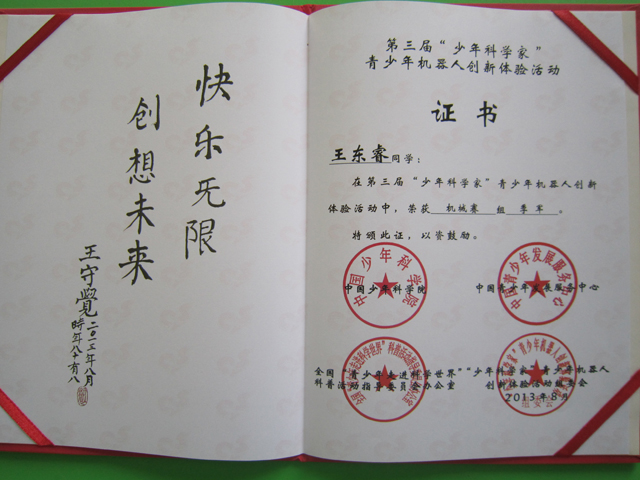 快乐无限
创想未来
王守觉
二〇一三年八月
時年八十有八
第三届“少年科学家”
青少年机器人创新体验活动
证书
王东睿同学：
在第三届“少年科学家”青少年机器人创新
体验活动中，荣获 机械赛 组 季军 。
特颁此证，以资鼓励。
中国少年科学院
中国少年科学院
中国青少年发展服务中心
中国青少年发展服务中心
全国“青少年走进科学世界”
科普活动指导委员会办公室
“少年科学家”青少年机器人
创新体验活动组委会
2013年8月